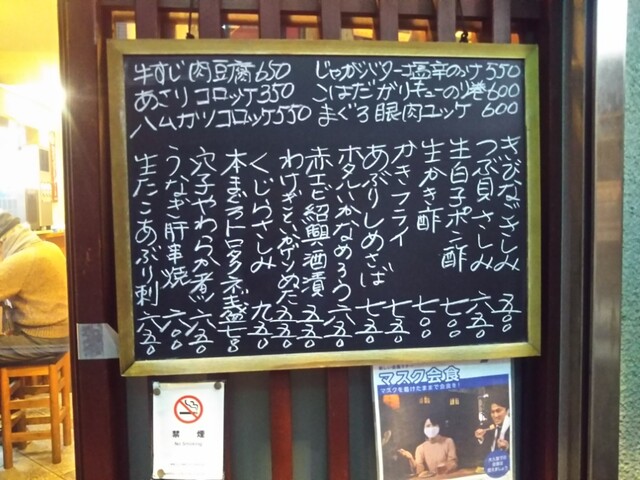 牛すじ肉豆腐650
あさりコロッケ350
ハムカツコロッケ550
じゃがバター塩辛のっけ550
こはだガリキューのり巻600
まぐろ眼肉ユッケ600
きびなごさしみ 五五〇
つぶ貝さしみ 六五〇
生白子ポン酢 七五〇
生かき酢 七〇〇
かきフライ 七五〇
あぶりしめさば 七五〇
ホタルいかなめろう 六五〇
赤エビ紹興酒漬 五五〇
わけぎといかゲソぬた 五五〇
くじらさしみ 九五〇
本まぐろトロタク
穴子やわらか煮 六五〇
うなぎ肝串焼 六〇〇
生たこあぶり刺 六五〇
禁煙
No Smoking
マスク会食
マスクを着けたままで会食を!